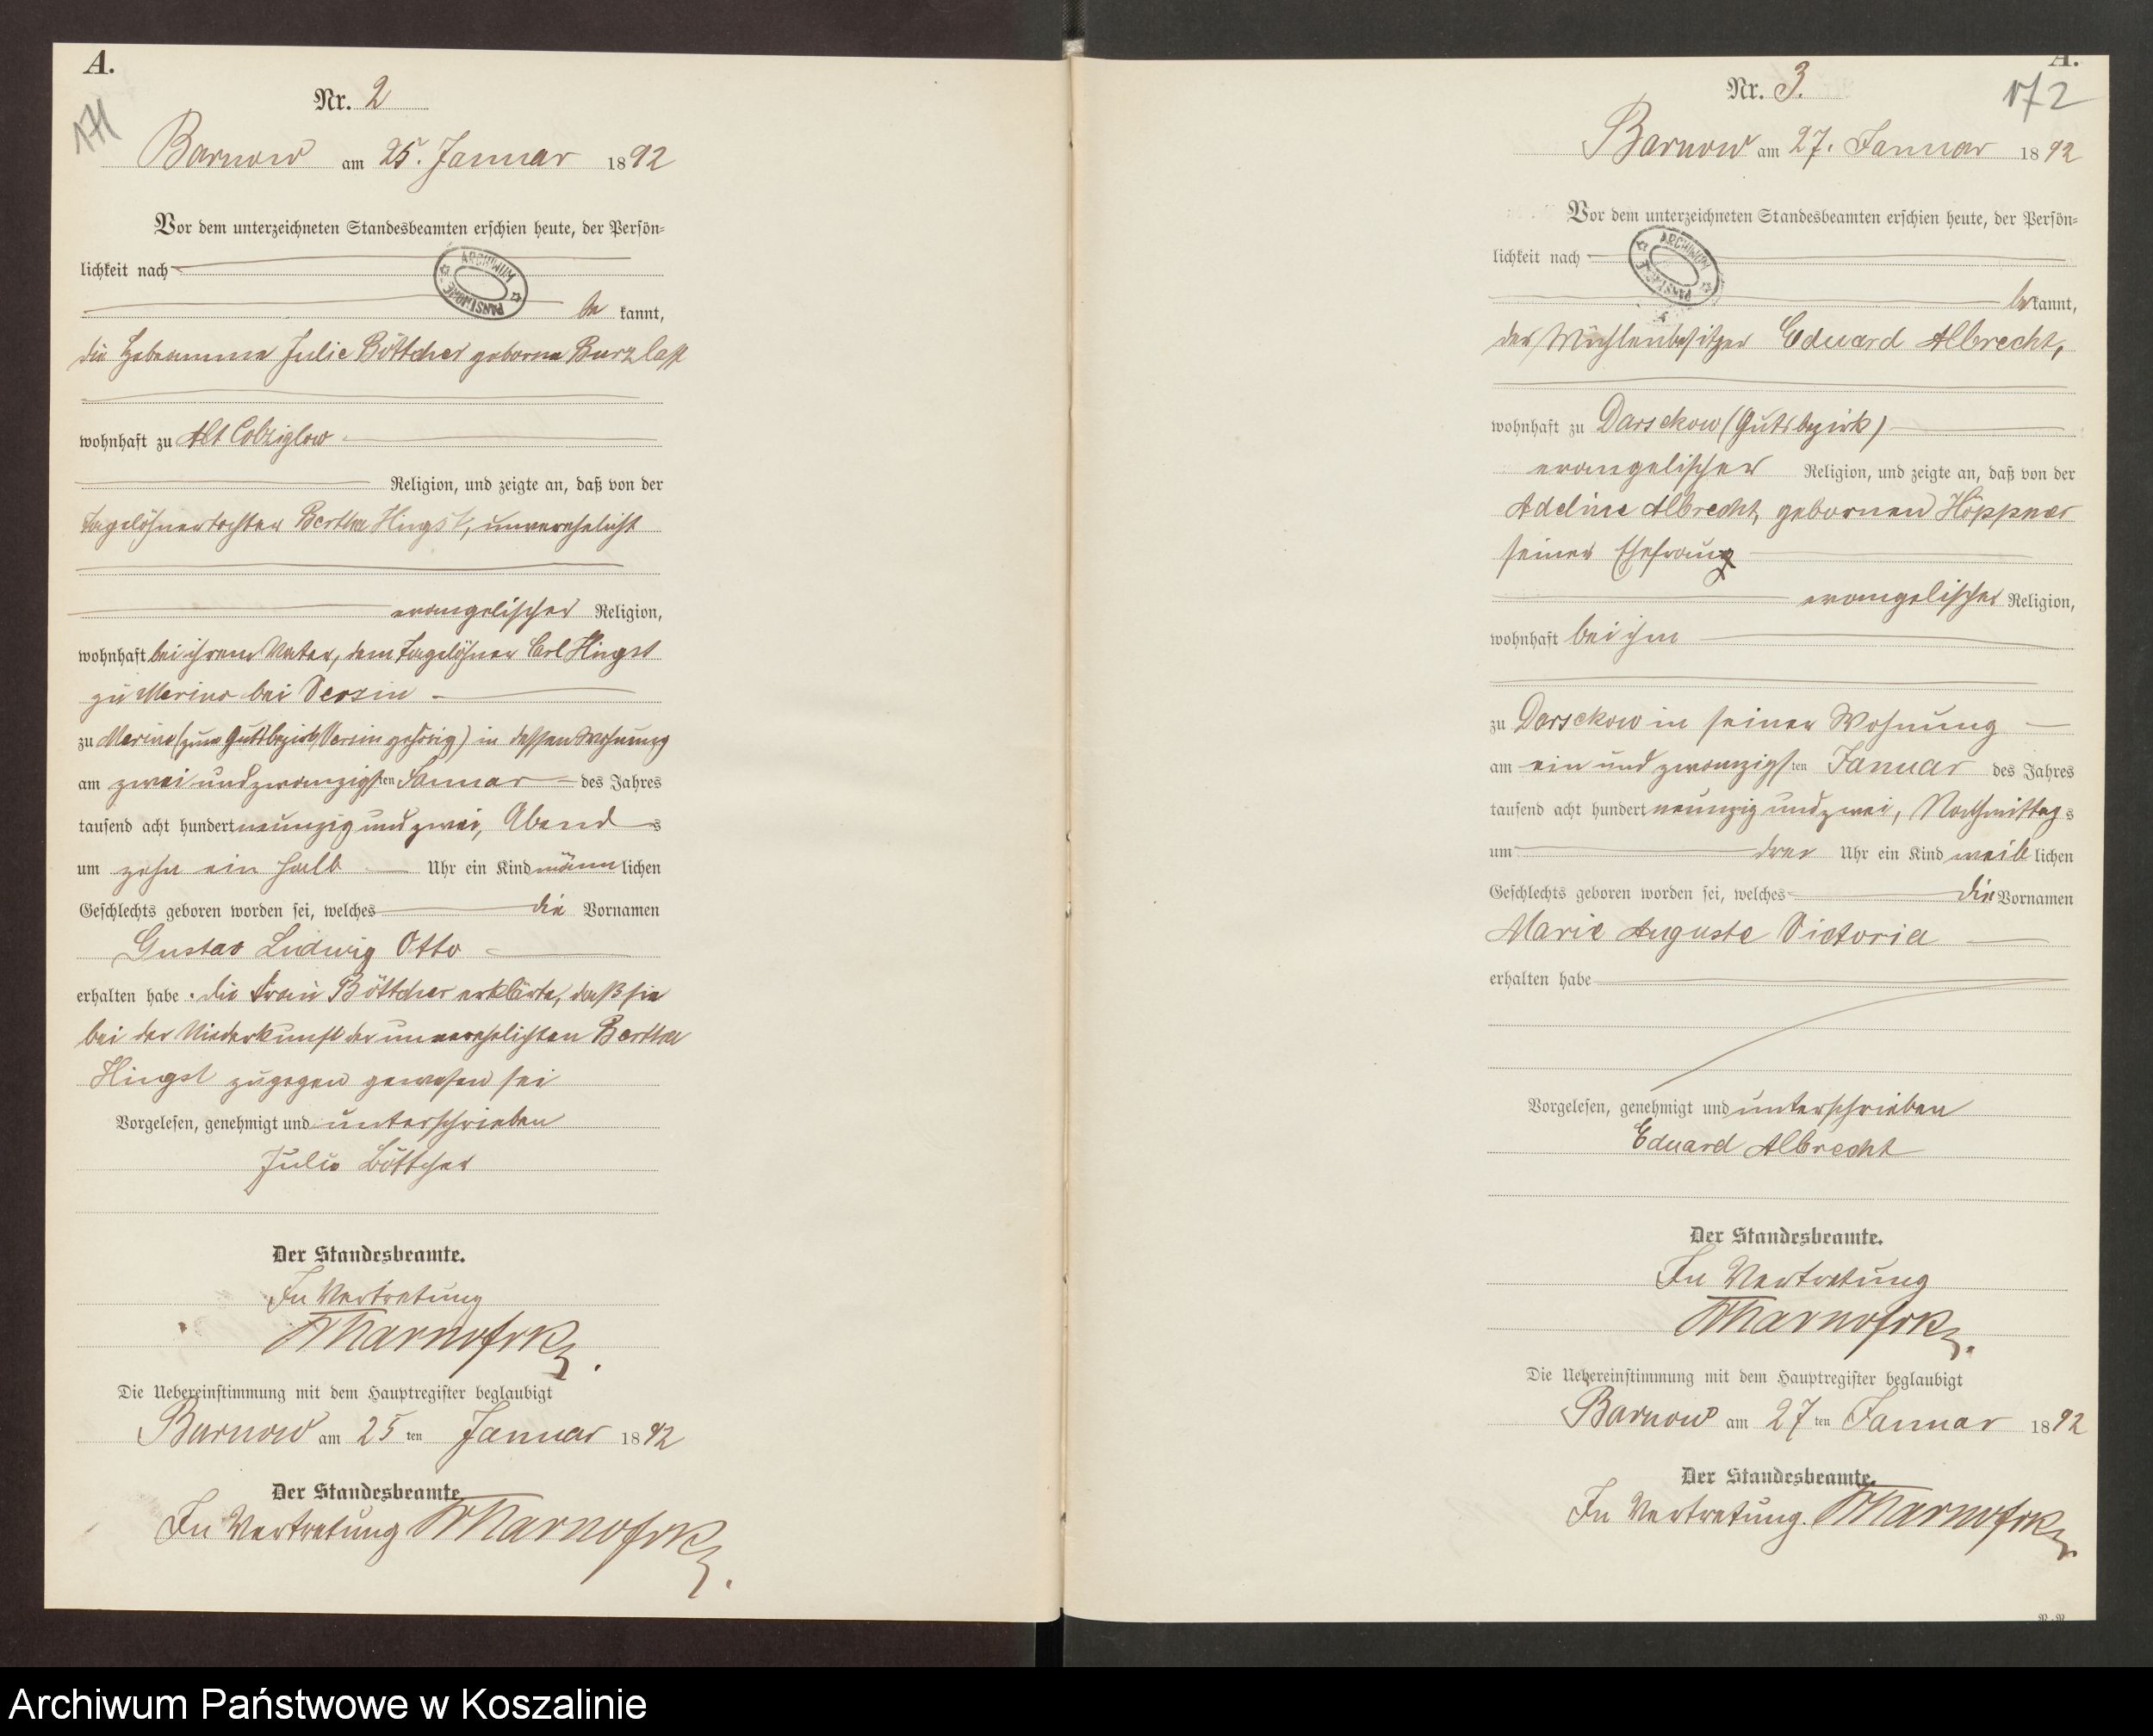 A.
171
Nr. 2
Barnow am 25. Januar 1892
Vor dem unterzeichneten Standesbeamten erschien heute, der Persön-
lichkeit nach
be kannt,
die Hebeamme Julie Böttcher geborne Burzlaff
wohnhaft zu Alt Colziglow
Religion, und zeigte an, daß von der
Tagelöhnertochter Bertha Hingst, unverehelicht
evangelischer Religion,
wohnhaft bei ihrem Vater, dem Tagelöhner Carl Hingst
zu Merino bei Versin
zu Merino (zum Gutsbezirk Versin gehörig) in dessen Wohnung
am zwei und zwanzigsten Januar des Jahres
tausend acht hundert neunzig und zwei, Abends
um zehn ein halb Uhr ein Kind männlichen
Geschlechts geboren worden sei, welches die Vornamen
Gustav Ludwig Otto
erhalten habe. Die Frau Böttcher erklärte, daß sie
bei der Niederkunft der unverehelichten Bertha
Hingst zugegen gewesen sei
Vorgelesen, genehmigt und unterschrieben
Julie Böttcher
Der Standesbeamte.
In Vertretung
Die Uebereinstimmung mit dem Hauptregister beglaubigt
Barnow am 25ten Januar 1892
Der Standesbeamte
In Vertretung
A.
172
Nr. 3.
Barnow am 27. Januar 1892
Vor dem unterzeichneten Standesbeamten erschien heute, der Persön-
lichkeit nach
bekannt,
der Mühlenbesitzer Eduard Albrecht,
wohnhaft zu Darsekow (Gutsbezirk)
evangelischer Religion, und zeigte an, daß von der
Adeline Albrecht, gebornen Höppner
seiner Ehefrau
evangelischer Religion,
wohnhaft bei ihm
zu Darsekow in seiner Wohnung
am ein und zwanzigsten Januar des Jahres
tausend acht hundert neunzig und zwei, Nachmittags
um drei Uhr ein Kind weiblichen
Geschlechts geboren worden sei, welches die Vornamen
Marie Auguste Victoria
erhalten habe
Vorgelesen, genehmigt und unterschrieben
Eduard Albrecht
Der Standesbeamte.
In Vertretung
Die Uebereinstimmung mit dem Hauptregister beglaubigt
Barnow am 27ten Januar 1892
Der Standesbeamte.
In Vertretung.
ARCHIWUM PAŃSTWOWE
ARCHIWUM PAŃSTWOWE
Archiwum Państwowe w Koszalinie